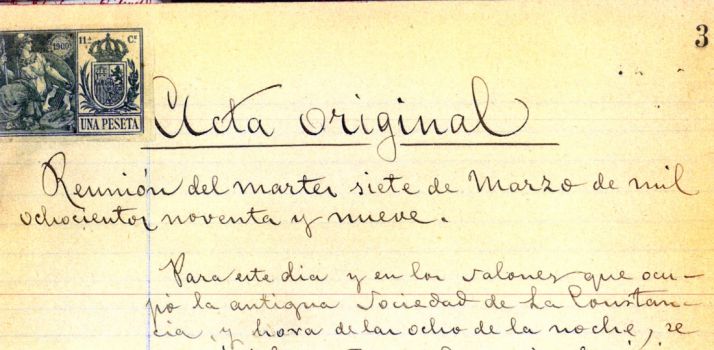 3
1900
11.ª Cᴱ
UNA PESETA
Acta original
Reunión del martes siete de Marzo de mil
ochocientos noventa y nueve.
Para este dia y en los salones que ocu-
pó la antigua Sociedad de La Constan-
cia, y hora de las ocho de la noche, se